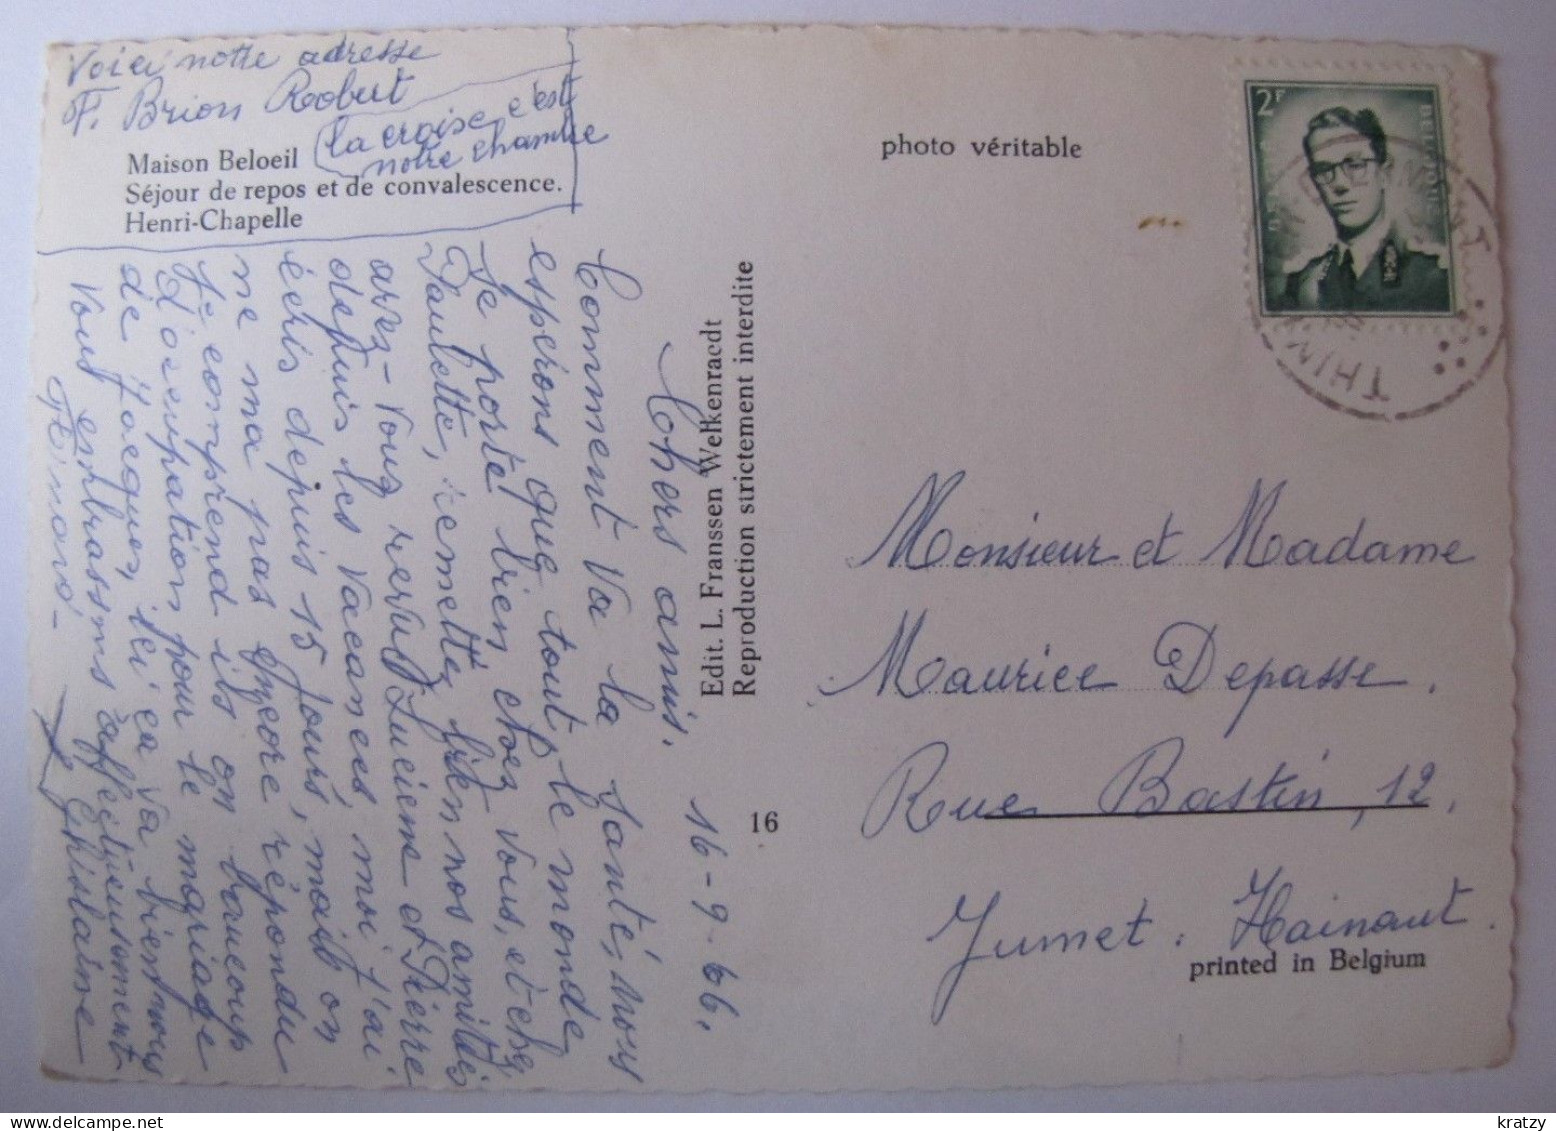 Voici notre adresse
F. Brion Robert
la croise c'est
notre chambre
Maison Beloeil
Séjour de repos et de convalescence.
Henri-Chapelle
16-9-66.
Chers amis.
Comment va la santé, nous
espérons que tout le monde
se porte bien chez vous, et chez
Paulette, remettez bien nos amitiés
avez-vous revu Lucienne et Pierre
depuis les vacances, moi j'ai
écris depuis 15 jours, mais on
ne m'a pas encore répondu
je comprend ils on baucoup
d'occupation pour le mariage
de Jacques, ici ça va bien nous
vous embrassons affectueusement
Ghislaine
Edit. L. Franssen Welkenraedt
Reproduction strictement interdite
16
photo véritable
2F
BELGIQUE
THIM
CLERMONT
Monsieur et Madame
Maurice Depasse.
Rue Bastin, 12.
Jumet. Hainaut.
printed in Belgium
www.delcampe.net
kratzy